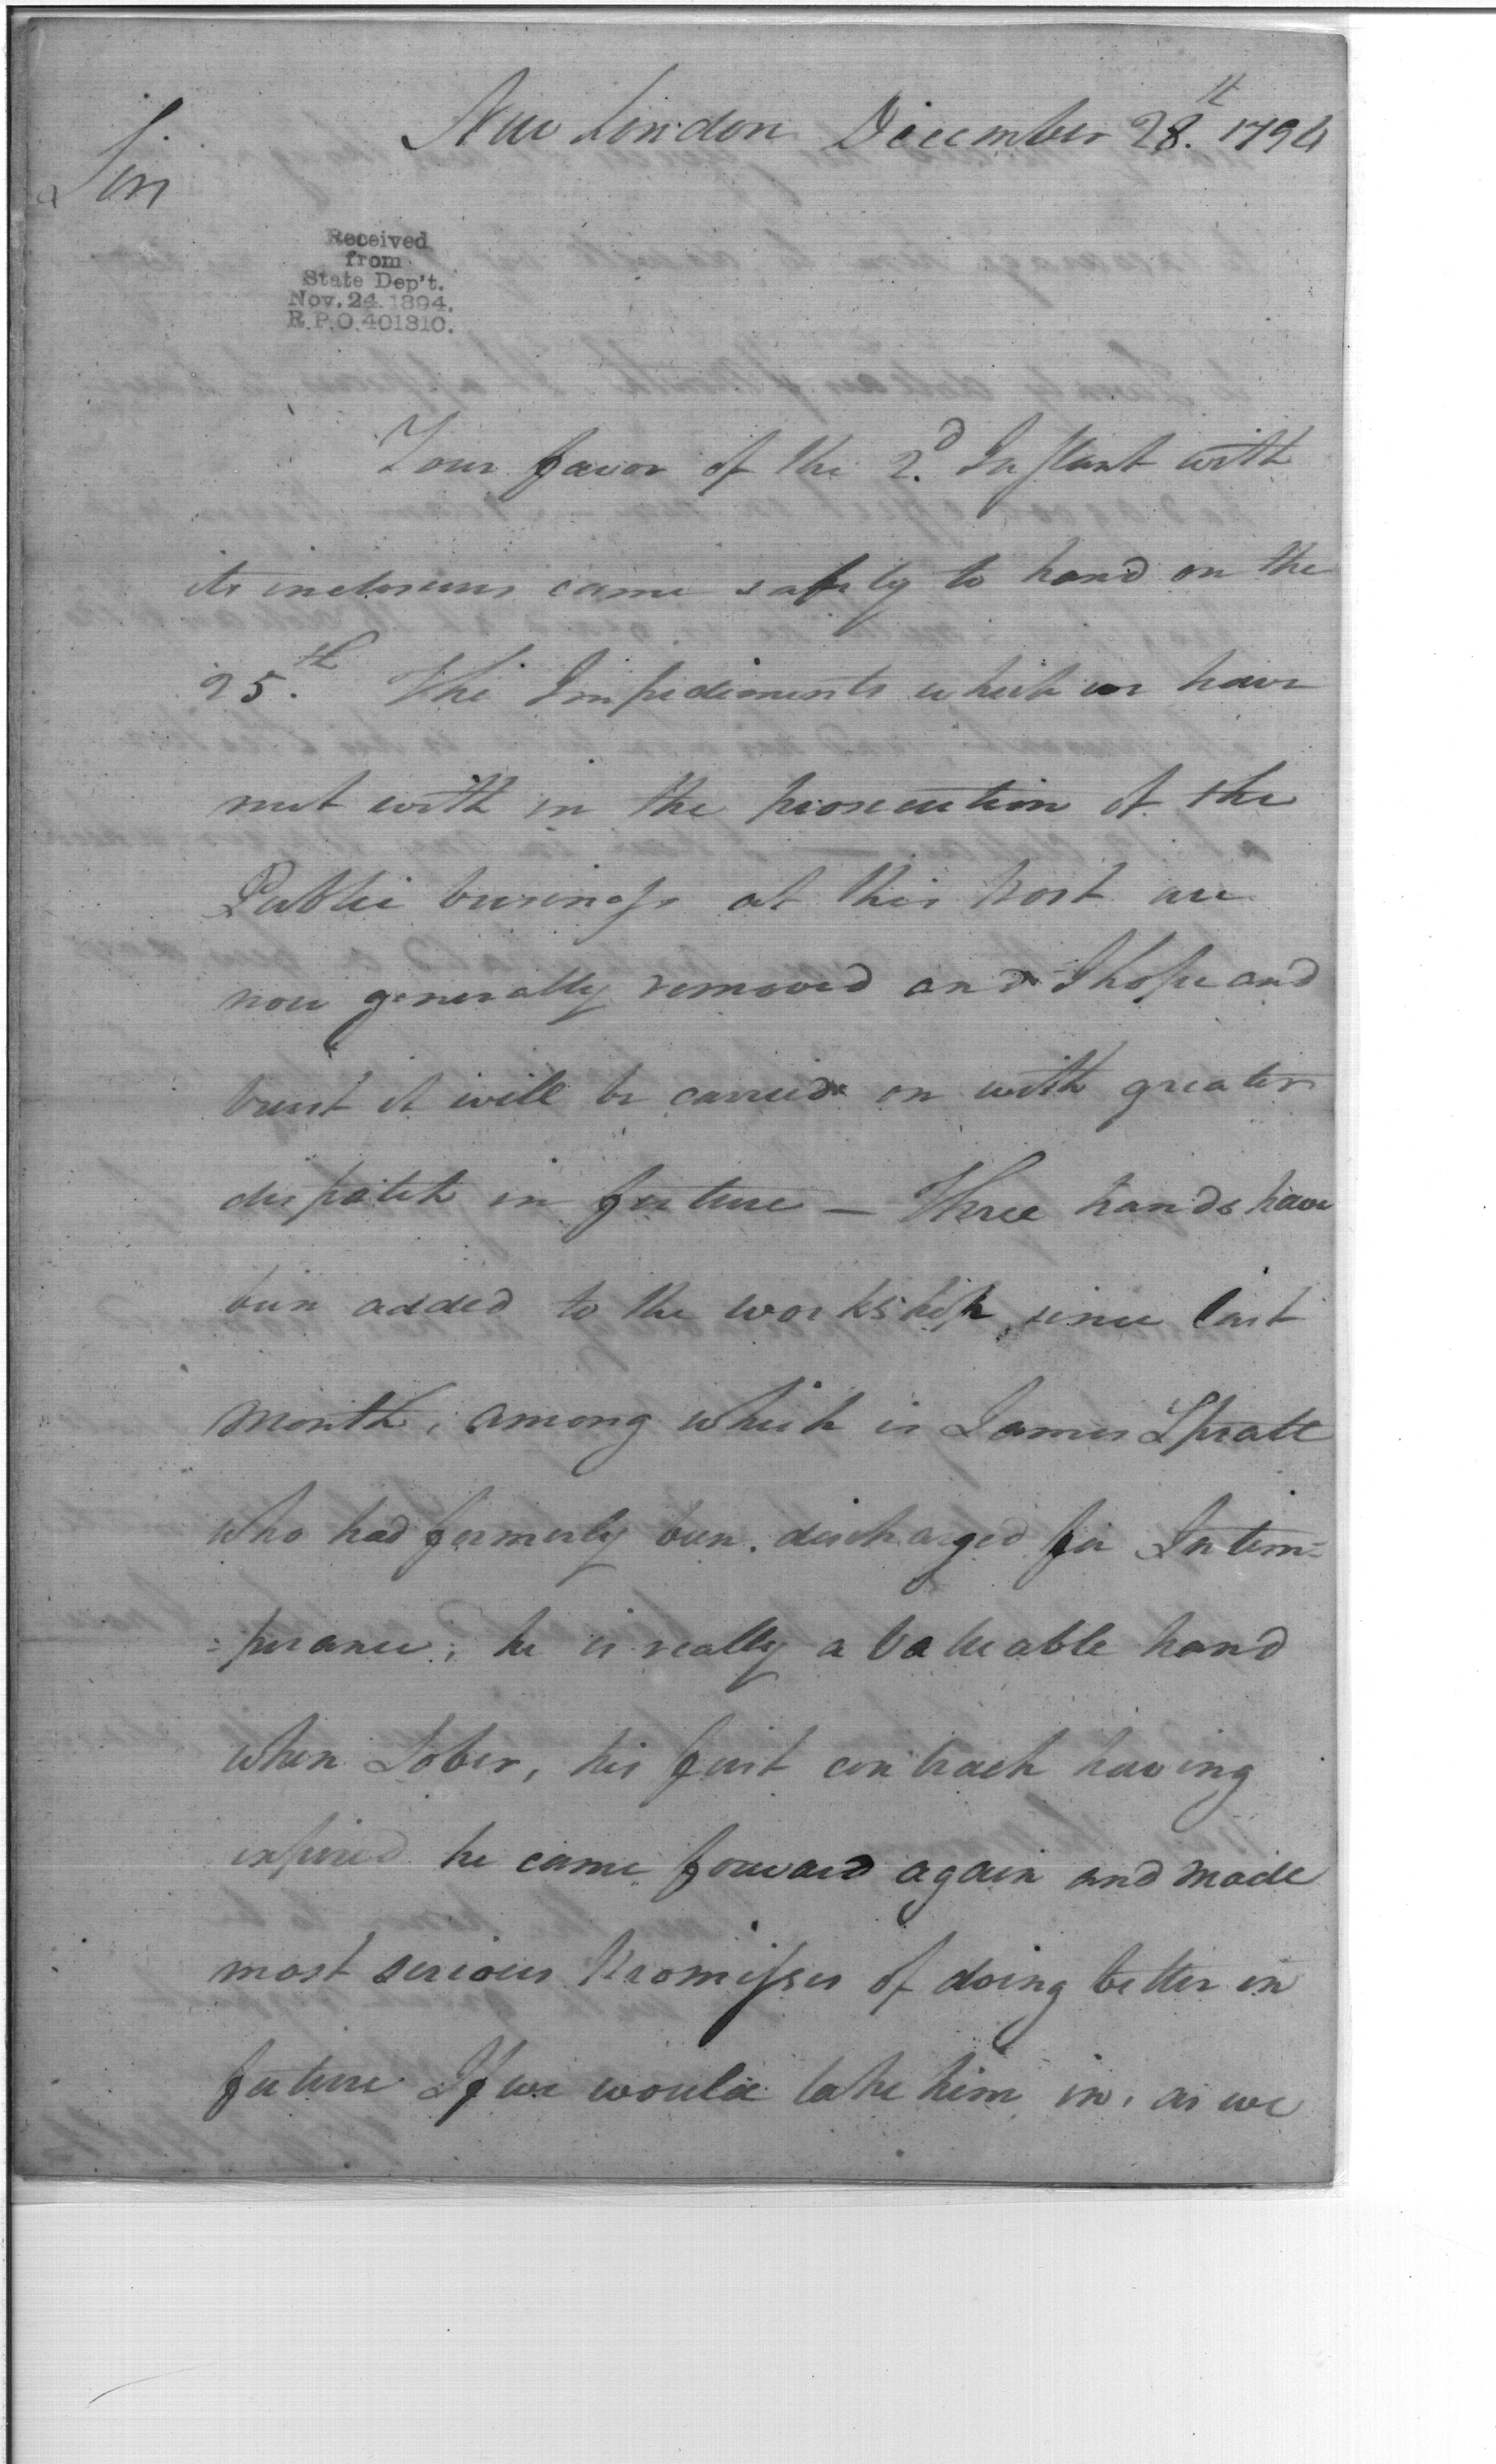 New London December 28.th 1794
Sir
Received
from
State Dep't.
Nov. 24. 1894.
R.P.O. 401310.
Your favor of the 2.d Instant with
its inclosures came safely to hand on the
25.th The Impediments which we have
met with in the prosecution of the
Public business at this Post are
now generally removed and I hope and
trust it will be carried on with greater
dispatch in future — Three hands have
been added to the workshop, since last
month, among which is James Spratt
who had formerly been discharged for Intem=
=perance; he is really a Valuable hand
when Sober, his first contract having
expired he came forward again and made
most serious Promisses of doing better in
future If we would take him in, as we